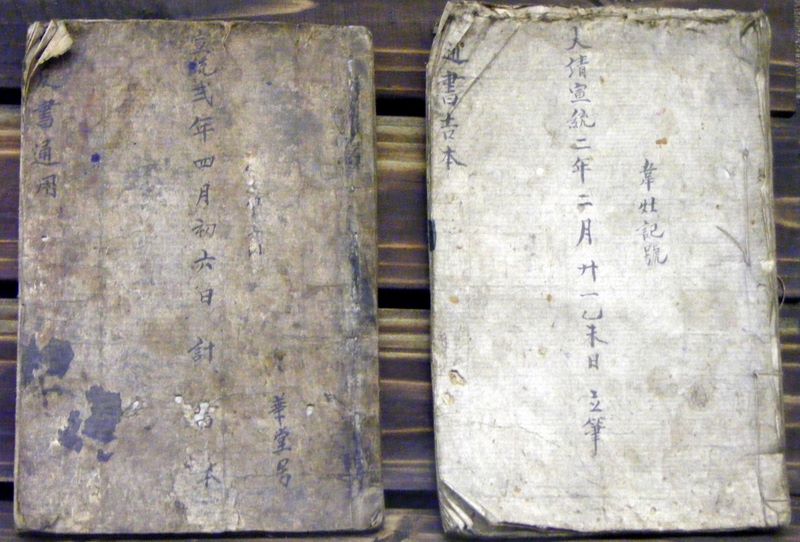 書通用
宣統弍年四月初六日 計 本
華堂号
通書吉本
大清宣統二年二月廿一乙未日 立筆
韋壯記號